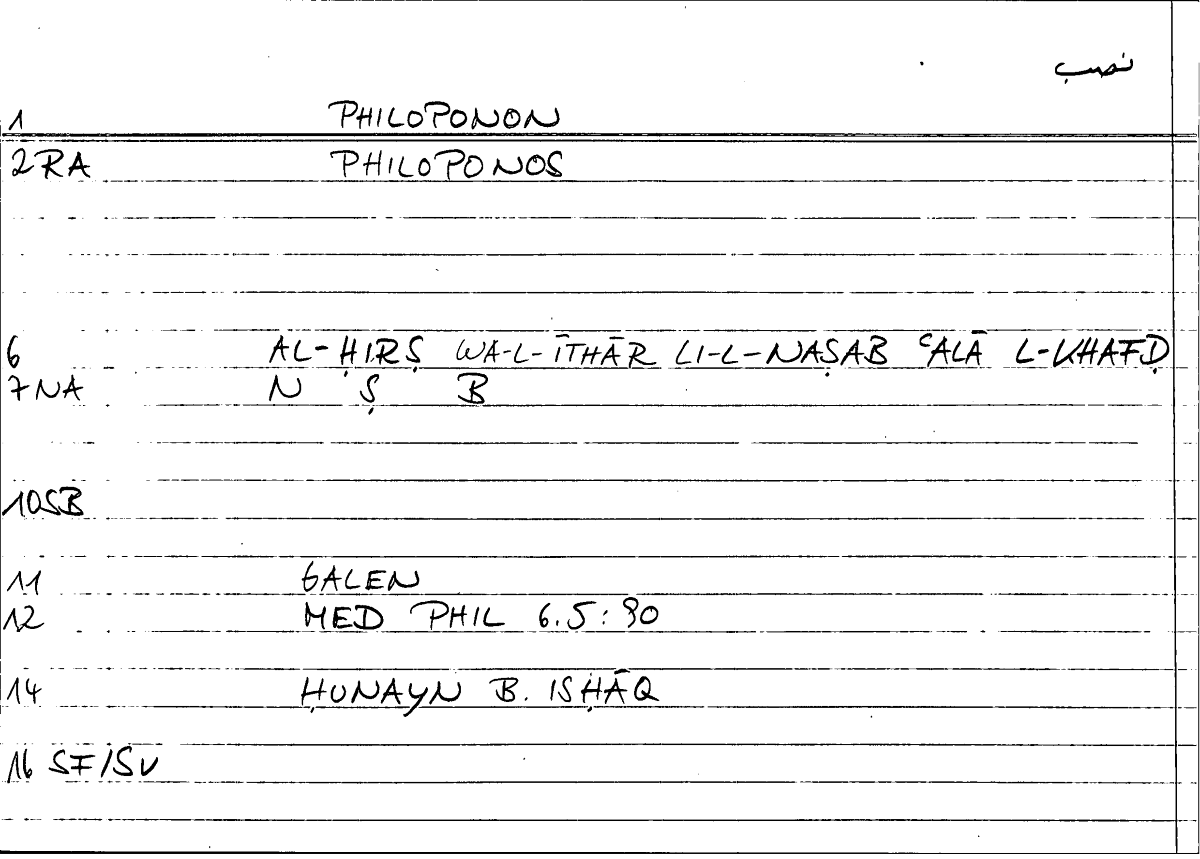 نصب
1 PHILOPONON
2RA PHILOPONOS
6 AL-ḤIRṢ WA-L-ĪTHĀR LI-L-NAṢAB ʿALĀ L-KHAFḌ
7NA N Ṣ B
10SB
11 GALEN
12 MED PHIL 6.5:90
14 ḤUNAYN B. ISḤĀQ
16 SF/SV